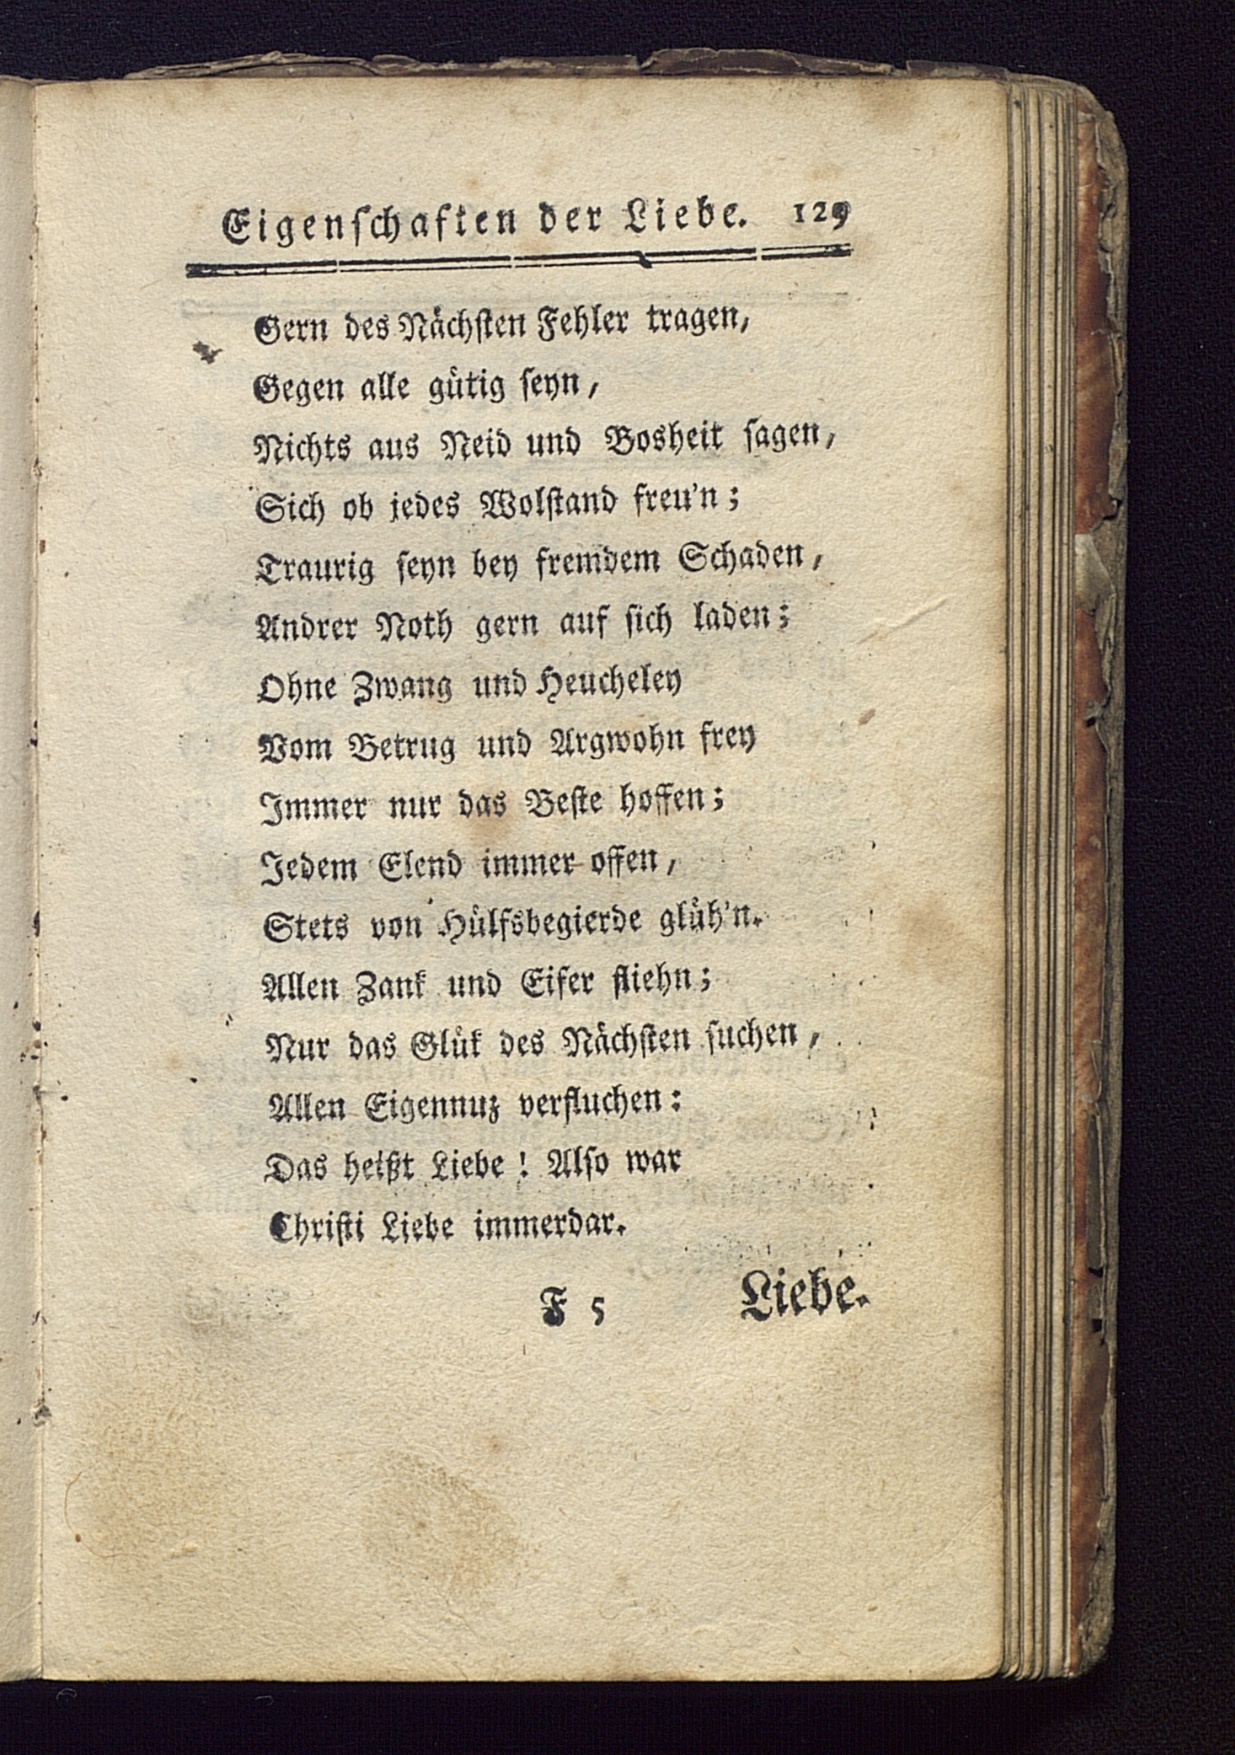 Eigenschaften der Liebe. 129
Gern des Nächsten Fehler tragen,
Gegen alle gütig seyn,
Nichts aus Neid und Bosheit sagen,
Sich ob jedes Wolstand freu'n;
Traurig seyn bey fremdem Schaden,
Andrer Noth gern auf sich laden;
Ohne Zwang und Heucheley
Vom Betrug und Argwohn frey
Immer nur das Beste hoffen;
Jedem Elend immer offen,
Stets von Hülfsbegierde glüh'n.
Allen Zank und Eifer fliehn;
Nur das Glük des Nächsten suchen,
Allen Eigennuz verfluchen:
Das heißt Liebe! Also war
Christi Liebe immerdar.
F 5 Liebe.